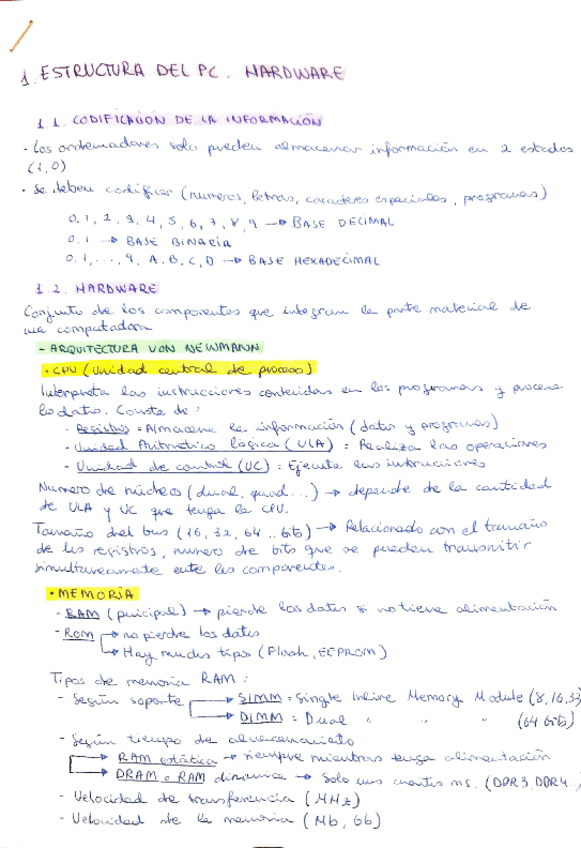 1. ESTRUCTURA DEL PC. HARDWARE
1.1. CODIFICACIÓN DE LA INFORMACIÓN
· Los ordenadores solo pueden almacenar información en 2 estados
(1,0)
· Se deben codificar (números, letras, caracteres especiales, programas)
0, 1, 2, 3, 4, 5, 6, 7, 8, 9 → BASE DECIMAL
0, 1 → BASE BINARIA
0, 1, ..., 9, A, B, C, D → BASE HEXADECIMAL
1.2. HARDWARE
Conjunto de los componentes que integran la parte material de
una computadora
- ARQUITECTURA VON NEWMANN
· CPU (Unidad central de proceso)
Interpreta las instrucciones contenidas en los programas y procesa
los datos. Consta de:
- Registros: Almacena la información (datos y programas)
- Unidad Aritmetico logica (ULA): Realiza las operaciones
- Unidad de control (UC): Ejecuta las instrucciones
Numero de núcleos (dual, quad...) → depende de la cantidad
de ULA y UC que tenga la CPU.
Tamaño del bus (16, 32, 64 .. bits) → Relacionado con el tamaño
de los registros, numero de bits que se pueden transmitir
simultaneamente entre los componentes.
· MEMORIA
- RAM (principal) → pierde los datos si no tiene alimentación
- ROM → no pierde los datos
→ Hay muchos tipos (Flash, EEPROM)
Tipos de memoria RAM:
- Según soporte → SIMM: Single Inline Memory Module (8,16,32)
→ DIMM: Dual " " " (64 bits)
- Según tiempo de almacenamiento
→ RAM estática → siempre mientras tenga alimentación
→ DRAM o RAM dinámica → Solo unos cuantos ms. (DDR3, DDR4..)
- Velocidad de transferencia (MHz)
- Velocidad de la memoria (Mb, Gb)